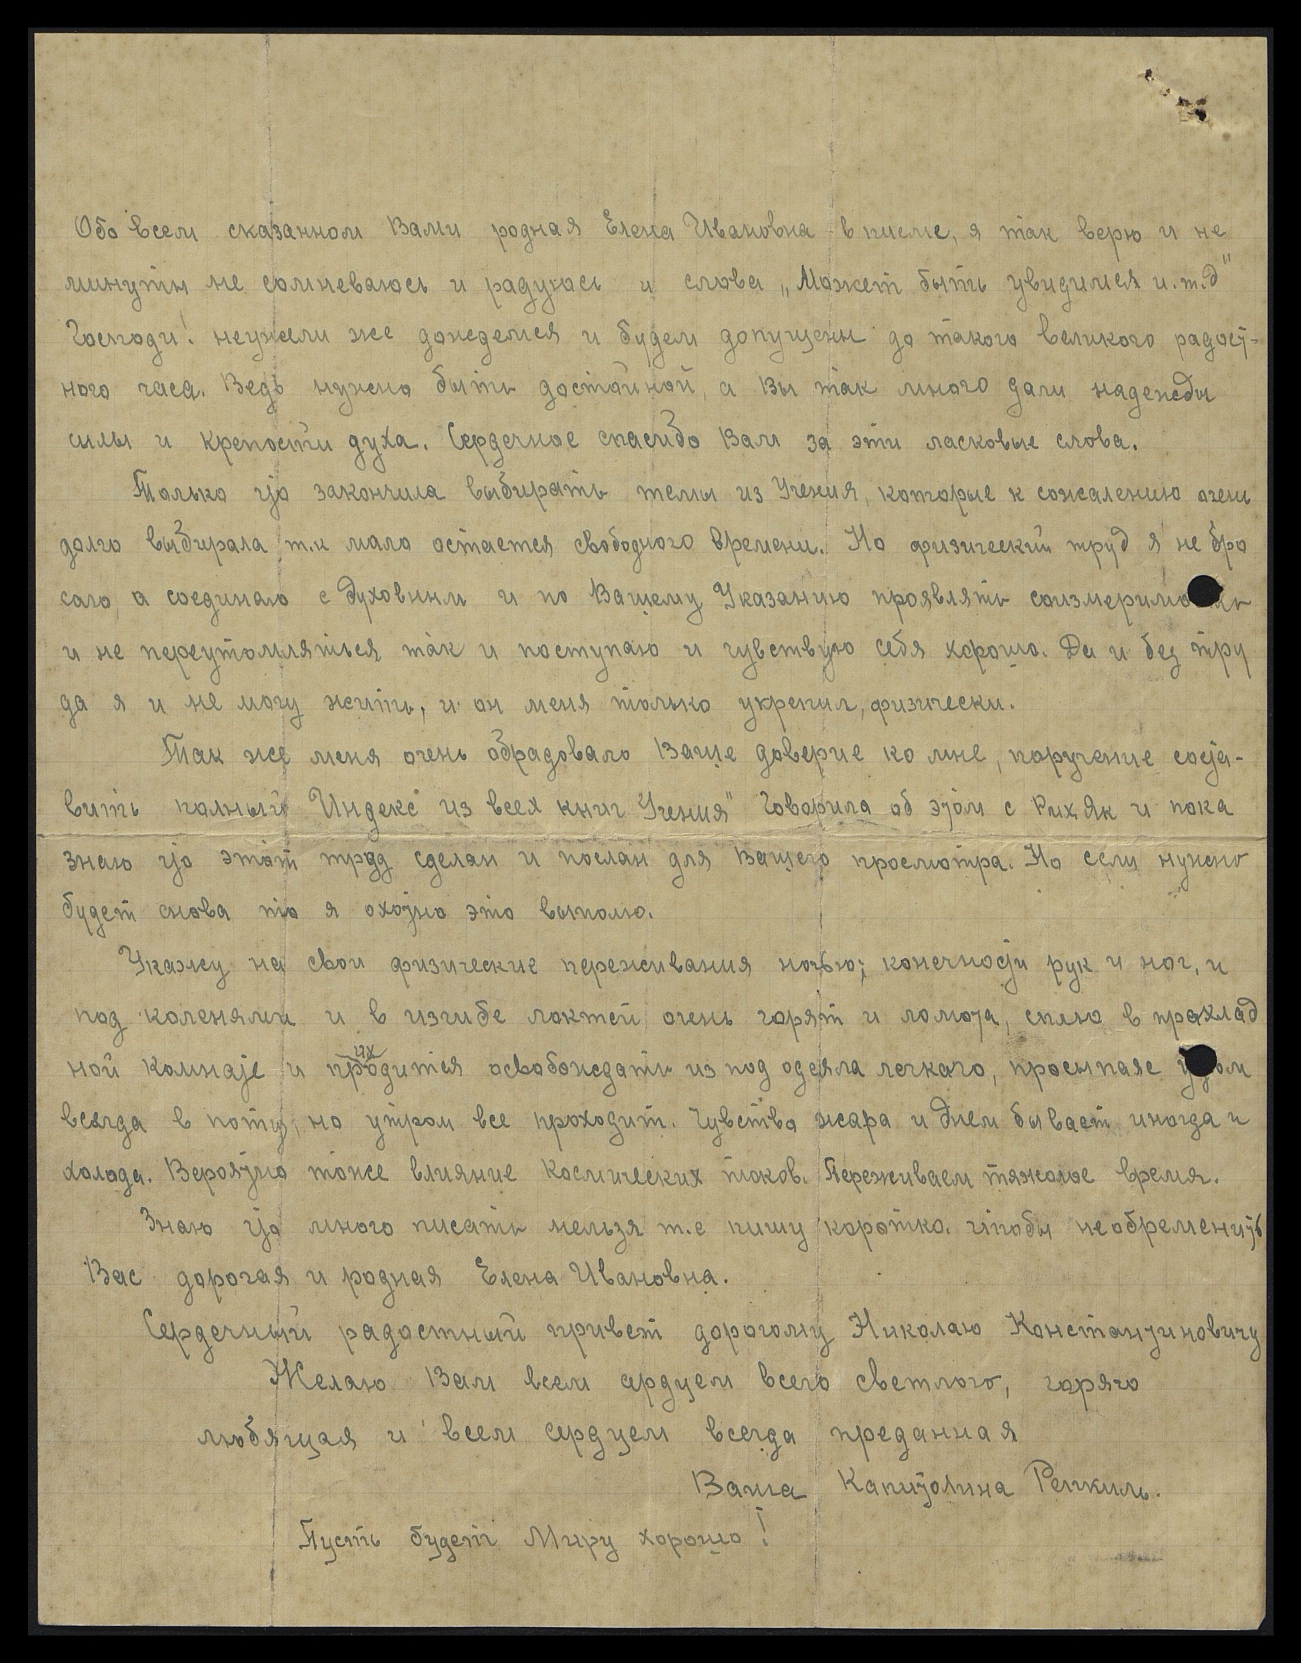 Обо всем сказанном Вами родная Елена Ивановна в писме, я так верю и не
минуты не сомневаюсь и радуюсь и слова „Может быть увидимся и.т.д"
Господи! неужели же дождемся и будем допущены до такого великого радост-
ного часа. Ведь нужно быть достойной, а Вы так много дали надежды
силы и крепости духа. Сердечное спасибо Вам за эти ласковые слова.
Только что закончила выбирать темы из Учения, которые к сожалению очень
долго выбирала т.к мало остается свободного времени. Но физический труд я не бро
саю, а соединяю с духовным и по Вашему Указанию проявлять соизмеримость
и не переутомляться так и поступаю и чувствую себя хорошо. Да и без тру
да я и не могу жить, и он меня только укрепил, физически.
Так же меня очень обрадовало Ваше доверие ко мне, поручение соста-
вить полный Индекс из всех книг Учения" Говорила об этом с Рих Як и пока
знаю что этот труд сделан и послан для Вашего просмотра. Но если нужно
будет снова то я охотно это выполю.
Укажу на свои физические переживания ночью; конечности рук и ног, и
под коленями и в изгибе локтей очень горят и ломота, сплю в прохлад
ной комнате и приходится их освобождать из под одеяла легкаго, просыпаюсь утром
всегда в поту, но утром все проходит. Чувство жара и днем бывает иногда и
холода. Вероятно тоже влияние Космических токов. Переживаем тяжолое время.
Знаю что много писать нельзя т.е пишу коротко. чтобы необременить
Вас дорогая и родная Елена Ивановна.
Сердечный радостный привет дорогому Николаю Константиновичу
Желаю Вам всем сердцем всего светлого, горячо
любящая и всем сердцем всегда преданная
Ваша Капитолина
Пусть будет Миру хорошо!